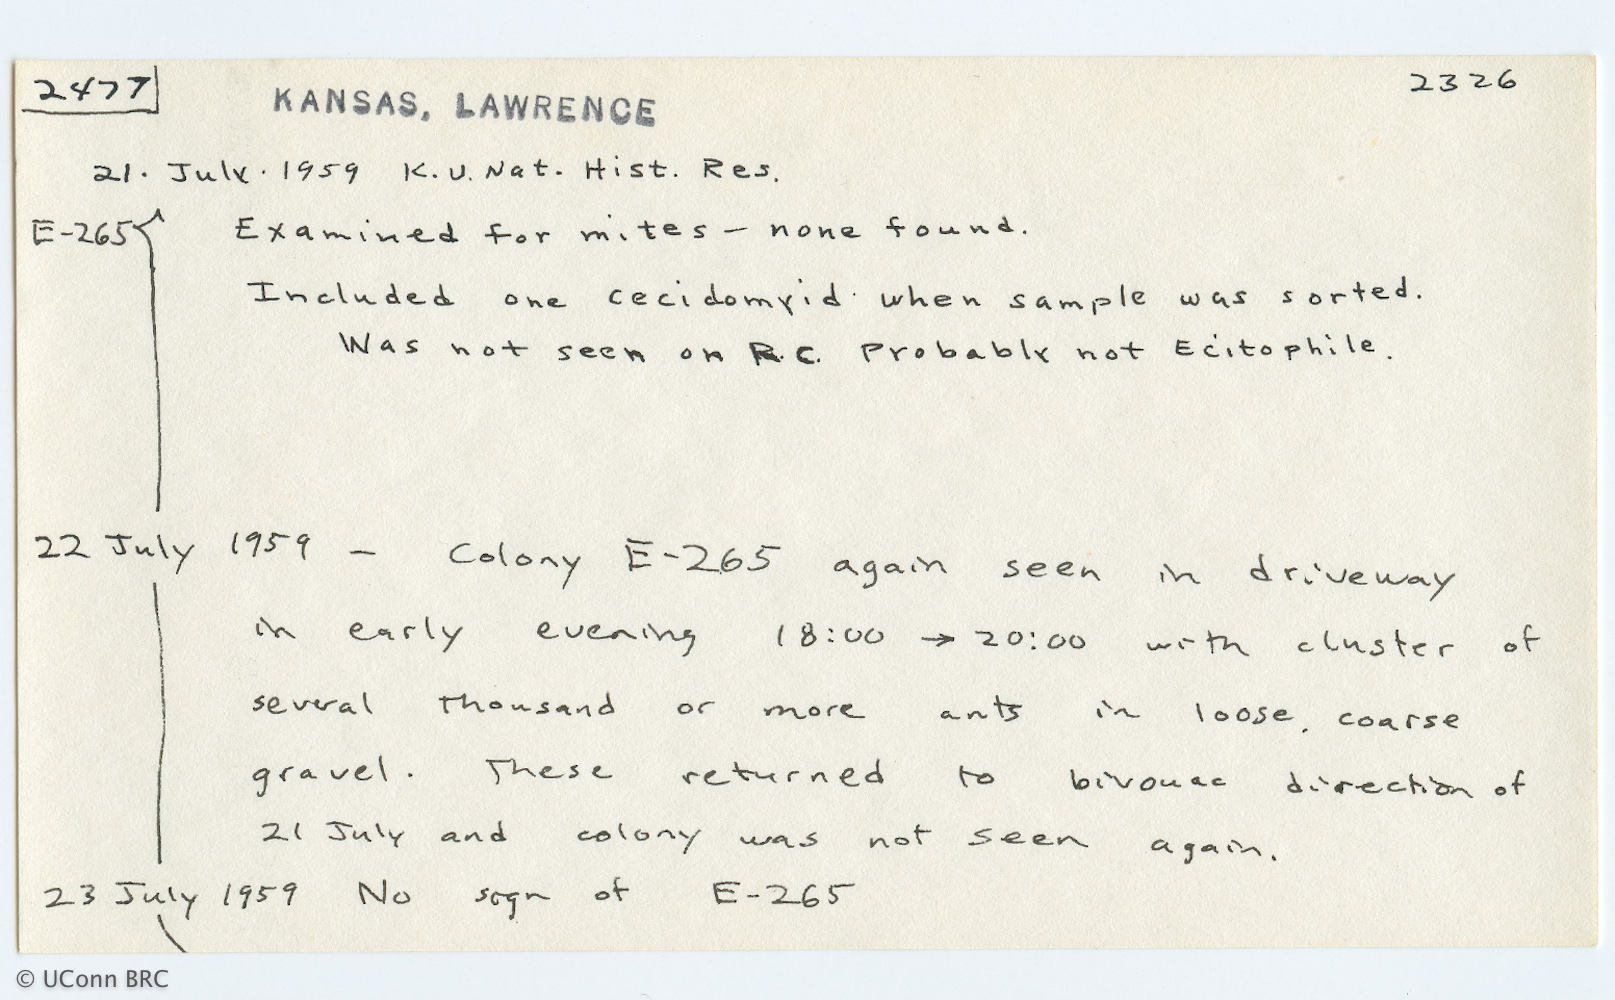 2477
KANSAS, LAWRENCE
2326
21. July. 1959 K.U. Nat. Hist. Res.
E-265 Examined for mites - none found.
Included one cecidomyid when sample was sorted.
Was not seen on R.C. Probably not Ecitophile.
22 July 1959 - Colony E-265 again seen in driveway
in early evening 18:00 → 20:00 with cluster of
several thousand or more ants in loose, coarse
gravel. These returned to bivouac direction of
21 July and colony was not seen again.
23 July 1959 No sign of E-265
© UConn BRC